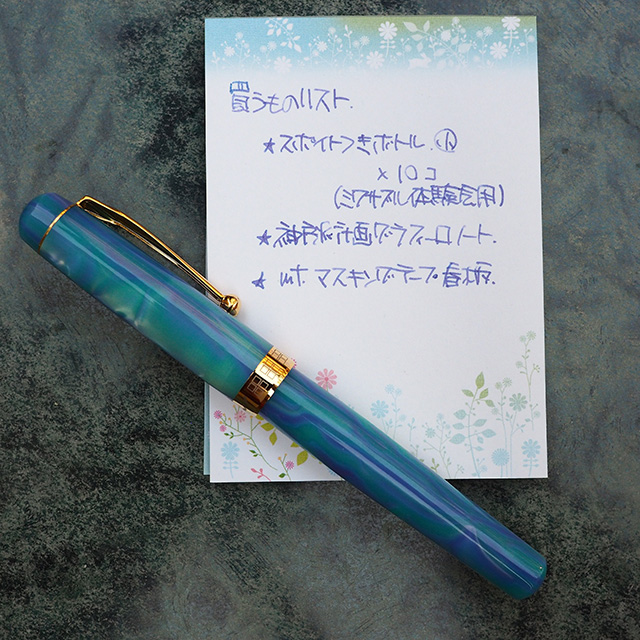 買うものリスト.
★スポイトつきボトル. 小
×10コ
(ミクサブル体験会用)
★神戸派計画グラフィーロノート.
★mt. マスキングテープ春柄.